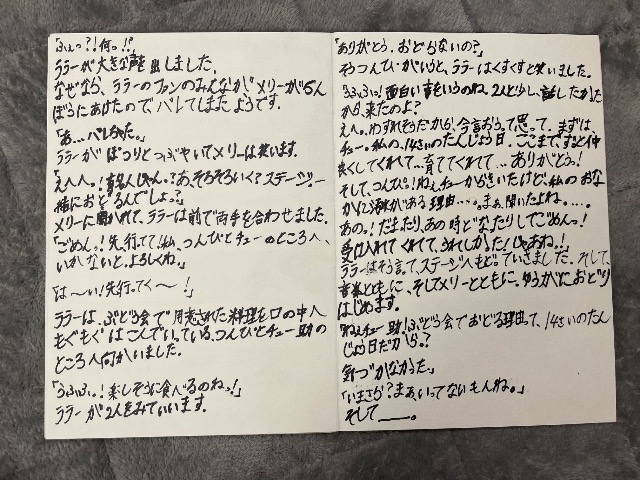 「ふえっ?!何っ!!」
ララーが大きな声を出しました。
なぜなら、ララーのファンのみんながメリーがらん
ぼうにあけたので、バレてしまたようです。
「あ...バレちゃた。」
ララーがぽつりとつぶやいてメリーは笑います。
「えへへっ!有名人じゃん〜?あ、そろそろいく?ステージ。一
緒におどるんでしょっ?」
メリーに聞かれて、ララーは前で両手を合わせました。
「ごめんっ!先、行ってて!私、つんぴとチューのところへ、
いかないと。よろしくね。」
「は〜い!先行ってく〜!」
ララーは、ぶどう会で用意された料理を口の中へ
もぐもぐはこんでいっている、つんぴとチュー助の
ところへ向かいました。
「うふふっ!楽しそうに食べるのねっ!」
ララーが2人をみていいます。
「ありがとう。おどらないの?」
そうつんぴーがいうと、ララーはくすくすと笑いました。
うふふっ!面白い事をいうのね。2人と少し、話したかた
から、来たのよ?
えへへ。わすれそうだから、今言おうって思って。まずは
チュー。私の、14さいのたんじょう日、ここまで、ずっと仲
良くしてくれて...育ててくれて...ありがとう!
そして、つんぴっ!ねぇ、チューからきいたけど、私のおな
かに
がある理由...。まあ、聞いたよね。...
あの。!だまたり、あの時どなたりしてごめんっ!
受け入れてくれて、うれしかた!じゃあねっ!」
ララーはそう言て、ステージへもどっていきました。そして、
音楽とともに、そしてメリーとともに。ゆうがにおどり
はじめます。
「ねぇチュー助!ぶどう会でおどる理由って、14さいのたん
じょう日だから?
気づかなかた。」
「いまさら?まぁ、いってないもんね。」
そして___。